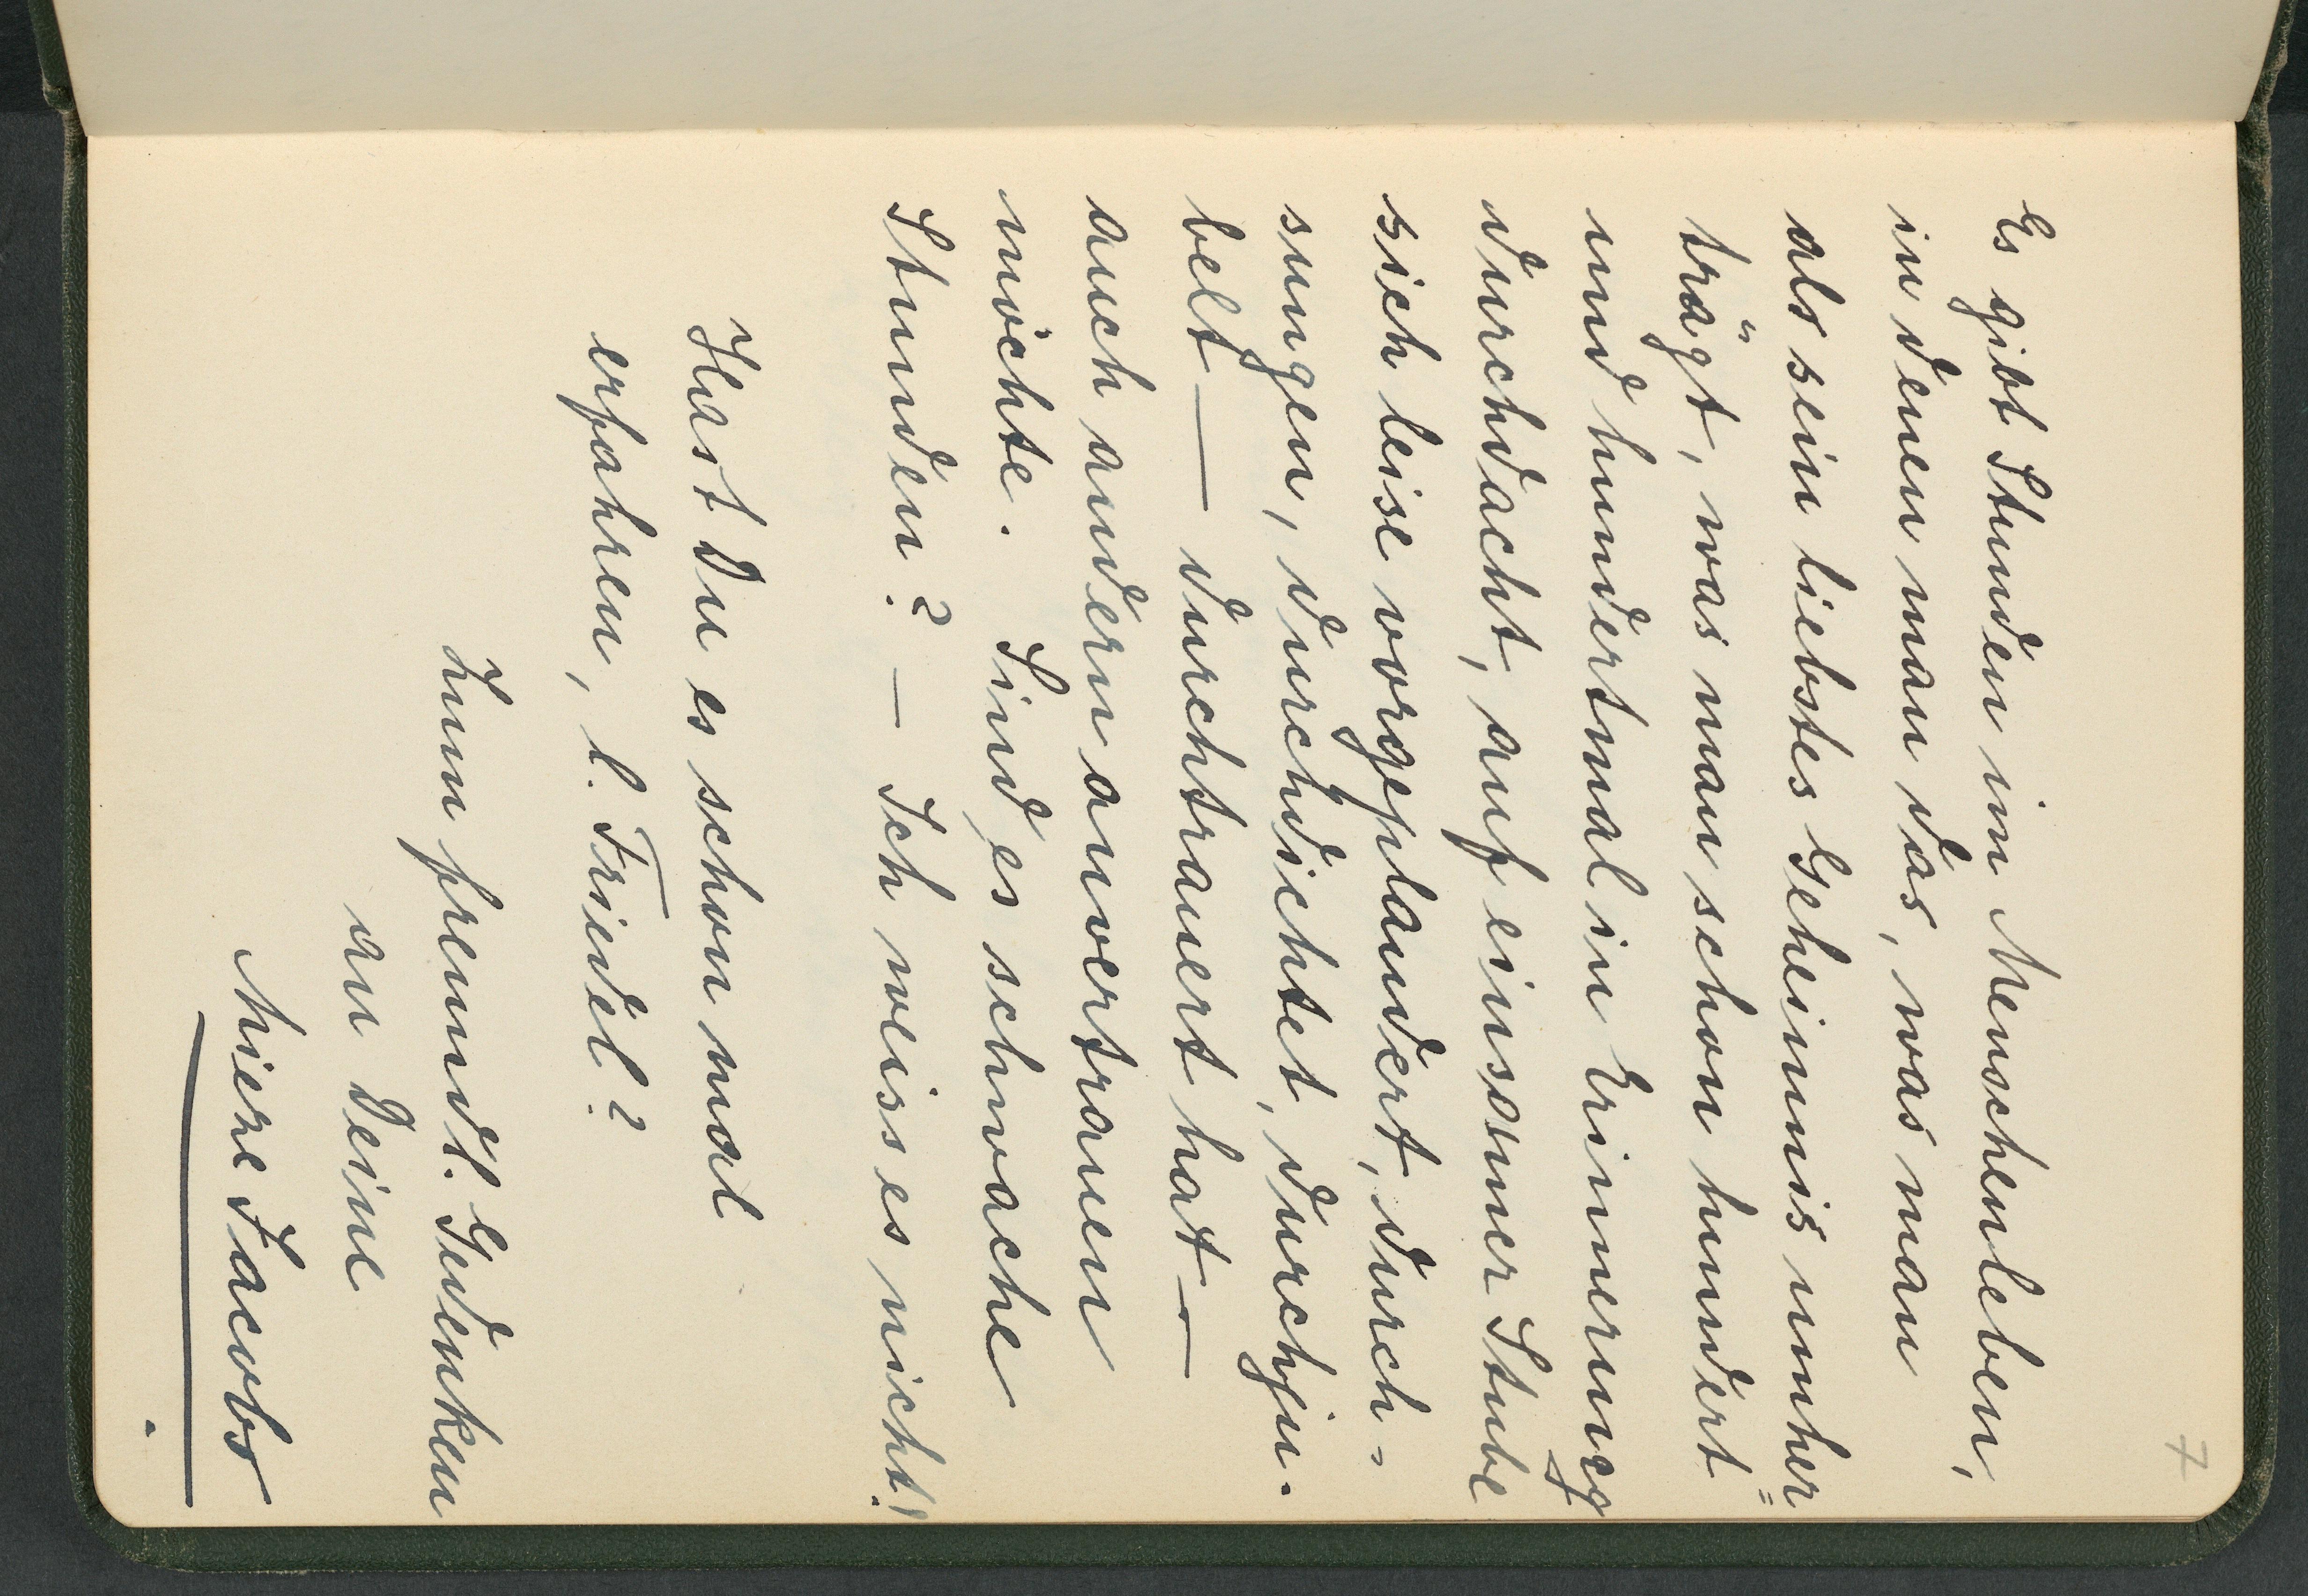 7
Es gibt Stunden im Menschenleben,
in denen man das, was man
als sein liebstes Geheimnis umher=
trägt, was man schon hundert
und hundertmal in Erinnerung
durchdacht, auf einsamer Stube
sich leise vorgeplaudert, durch=
sungen, durchdichtet, durchju-
belt — durchtrauert hat —
auch andern anvertrauen
möchte. Sind es schwache
Stunden? — Ich weiss es nicht!
Hast Du es schon mal
erfahren, l. Friedel?
Zum freundl. Gedenken
an Deine
Mieze Jacobs